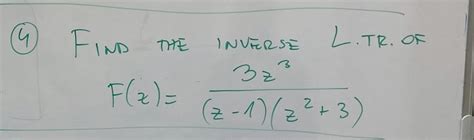 4 FIND THE INVERSE L.TR. OF
F(z) = 3z³ / (z-1)(z²+3)